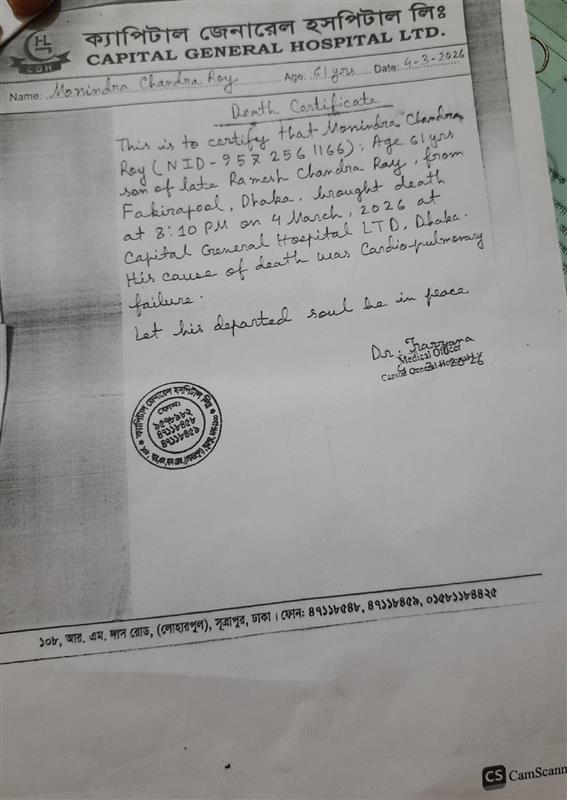 ক্যাপিটাল জেনারেল হসপিটাল লিঃ
CGH
CAPITAL GENERAL HOSPITAL LTD.
Name: Monindra Chandra Roy Age: 61 yrs Date: 4-3-2026
Death Certificate
This is to certify that Monindra Chandra
Roy (NID- 957 256 1166); Age 61 yrs
son of late Ramesh Chandra Ray, from
Fakirapool, Dhaka, brought death
at 8:10 PM on 4 March, 2026 at
Capital General Hospital LTD, Dhaka.
His cause of death was Cardio-pulmonary
failure.
Let his departed soul be in peace
Dr.
Medical Officer
Capital General Hospital
2026
ক্যাপিটাল জেনারেল হসপিটাল লিঃ
ফোন:
৯৫৭৮৯৮২
৪৭১১৮৫৪৮
৪৭১১৮৪৫৯
১০৮, আর. এম. দাস রোড, (লোহারপুল), সূত্রাপুর, ঢাকা। ফোন: ৪৭১১৮৫৪৮, ৪৭১১৮৪৫৯, ০১৫৮১১৮৪৪২৫
CS CamScann